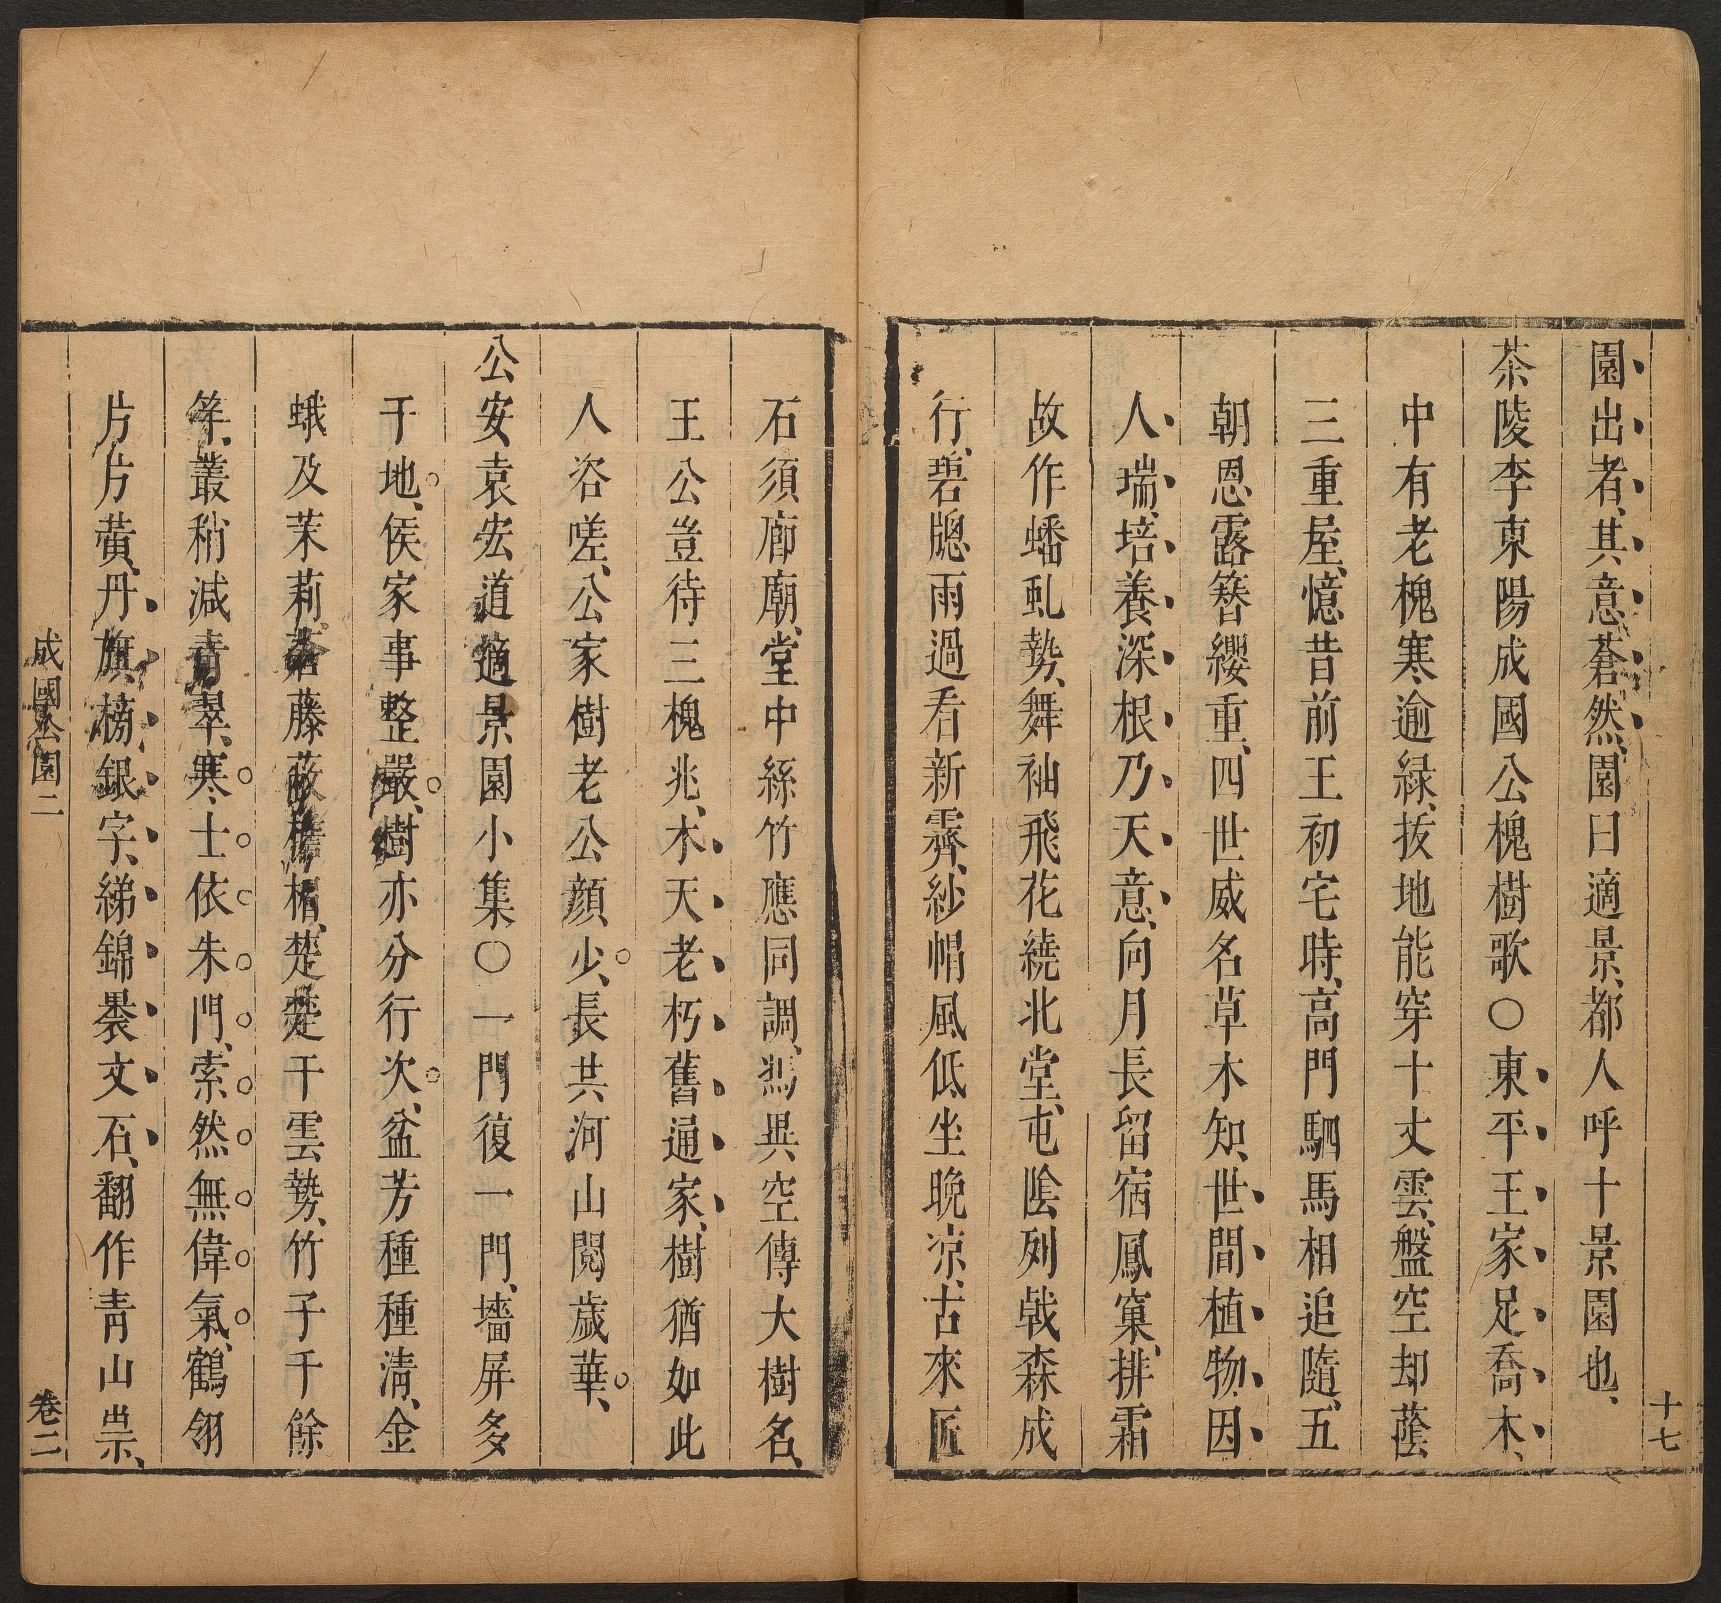 十七
園出者、其意蒼然、園曰適景、都人呼十景園也、
茶陵李東陽成國公槐樹歌○東平王家足喬木、
中有老槐寒逾綠、拔地能穿十丈雲、盤空却蔭
三重屋、憶昔前王初宅時、高門駟馬相追隨、五
朝恩露簪纓重、四世威名草木知、世間植物因
人瑞、培養深根乃天意、向月長留宿鳳窠、排霜
故作蟠虬勢、舞袖飛花繞北堂、屯陰列戟森成
行、碧牕雨過看新霽、紗帽風低坐晚凉、古來匠
石須廊廟、堂中絲竹應同調、馮異空傳大樹名、
王公豈待三槐兆、木天老朽舊通家、樹猶如此
人咨嗟、公家樹老公顏少、長共河山閱歲華、
公安袁宏道適景園小集○一門復一門、墻屏多
于地、侯家事整嚴、樹亦分行次、盆芳種種淸、金
蛾及茉莉、蒼藤蔽檐楣、楚楚干雲勢、竹子千餘
竿、叢稍減靑翠、寒士依朱門、索然無偉氣、鶴翎
片片黃、丹旗榜銀字、綈錦褁文石、翻作靑山祟、
成國公園二
卷二